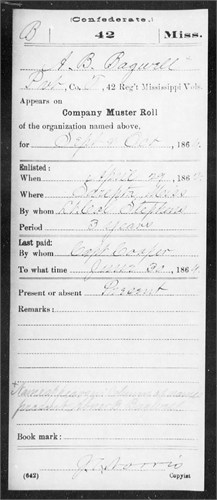 (Confederate.)
B 42 Miss.
A. B. Bagwell
Pvt, Co. F, 42 Reg't Mississippi Vols.
Appears on
Company Muster Roll
of the organization named above,
for Sept & Oct, 186
Enlisted:
When April 29, 186
Where Miss
By whom Stephens
Period 3 years
Last paid:
By whom Capt Cooper
To what time June 30, 1864
Present or absent Present
Remarks:
Book mark:
(642) Copyist